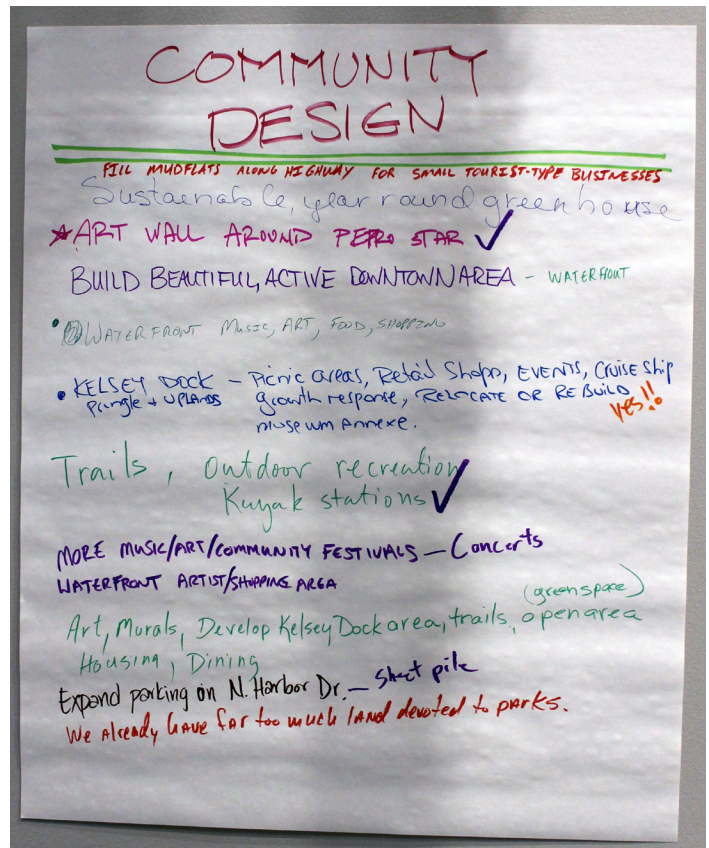 COMMUNITY
DESIGN
FILL MUDFLATS ALONG HIGHWAY FOR SMALL TOURIST-TYPE BUSINESSES
Sustainable, year round greenhouse
★ART WALL AROUND PETRO STAR ✓
BUILD BEAUTIFUL, ACTIVE DOWNTOWN AREA - WATERFRONT
• WATERFRONT MUSIC, ART, FOOD, SHOPPING
• KELSEY DOCK — Picnic areas, Retail Shops, EVENTS, Cruise Ship
growth response, RELOCATE OR REBUILD
+ UPLANDS
yes!!
museum Annexe.
Trails, Outdoor recreation
Kayak stations ✓
MORE MUSIC/ART/COMMUNITY FESTIVALS — Concerts
WATERFRONT ARTIST/SHOPPING AREA
(greenspace)
Art, Murals, Develop Kelsey Dock area, trails, open area
Housing, Dining
Expand parking on N. Harbor Dr. — sheet pile
We Already have far too much land devoted to parks.